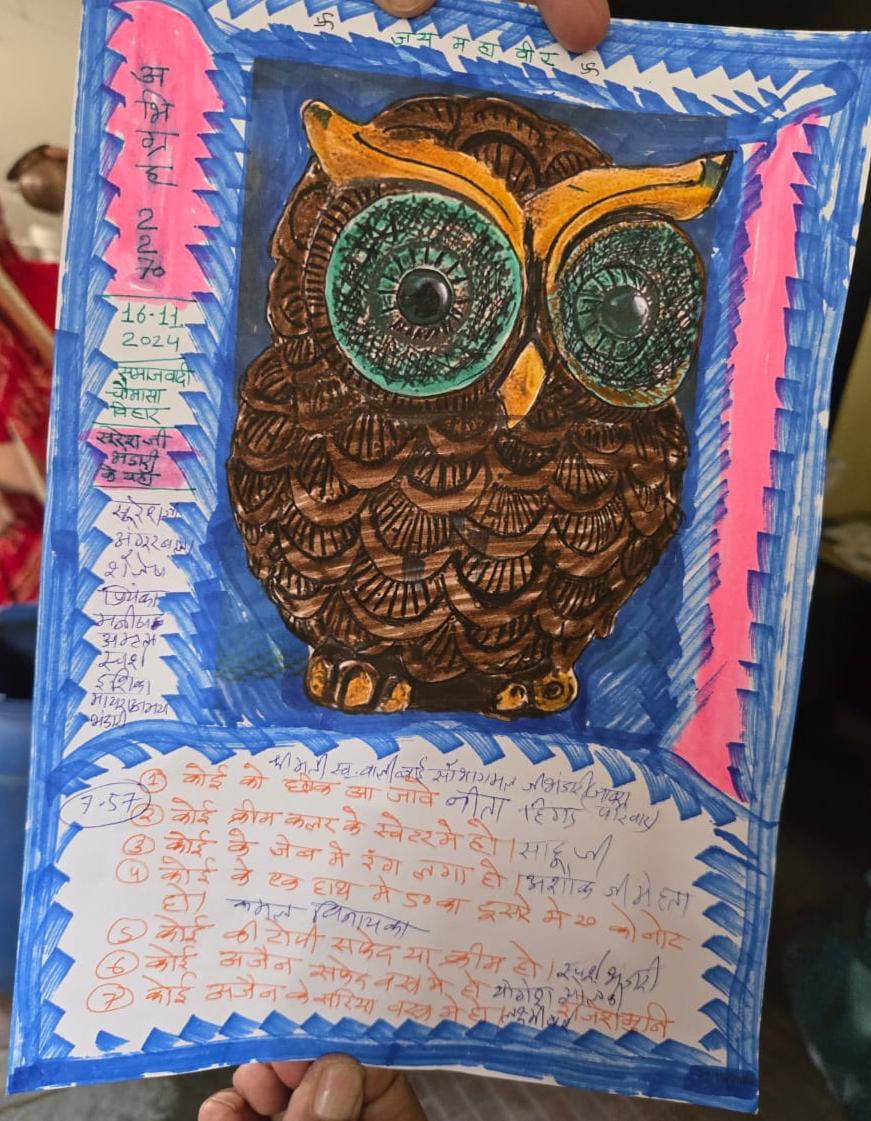 卐 जय महावीर 卐
अभिग्रह
2270
16-11
2024
समाजवादी
चौमासा
विहार
सुरेश जी
भंडारी
के यहाँ
सुरेश जी
शैलेष
प्रियंका
मनीषा
स्पर्श
इशिका
भंडारी
7.57
① कोई को छींक आ जावे नीता हिंगड परिवार
② कोई क्रीम कलर के स्वेटर मे हो। साहू जी
③ कोई के जेब मे रंग लगा हो। अशोक जी मेहता
④ कोई के एक हाथ मे 50 का दूसरे मे 20 को नोट
हो। कमल विनायका
⑤ कोई की टोपी सफेद या क्रीम हो। स्पर्श भंडारी
⑥ कोई अजैन सफेद वस्त्र मे हो योगेश
⑦ कोई अजैन केसरिया वस्त्र मे हो। राजेशमुनि